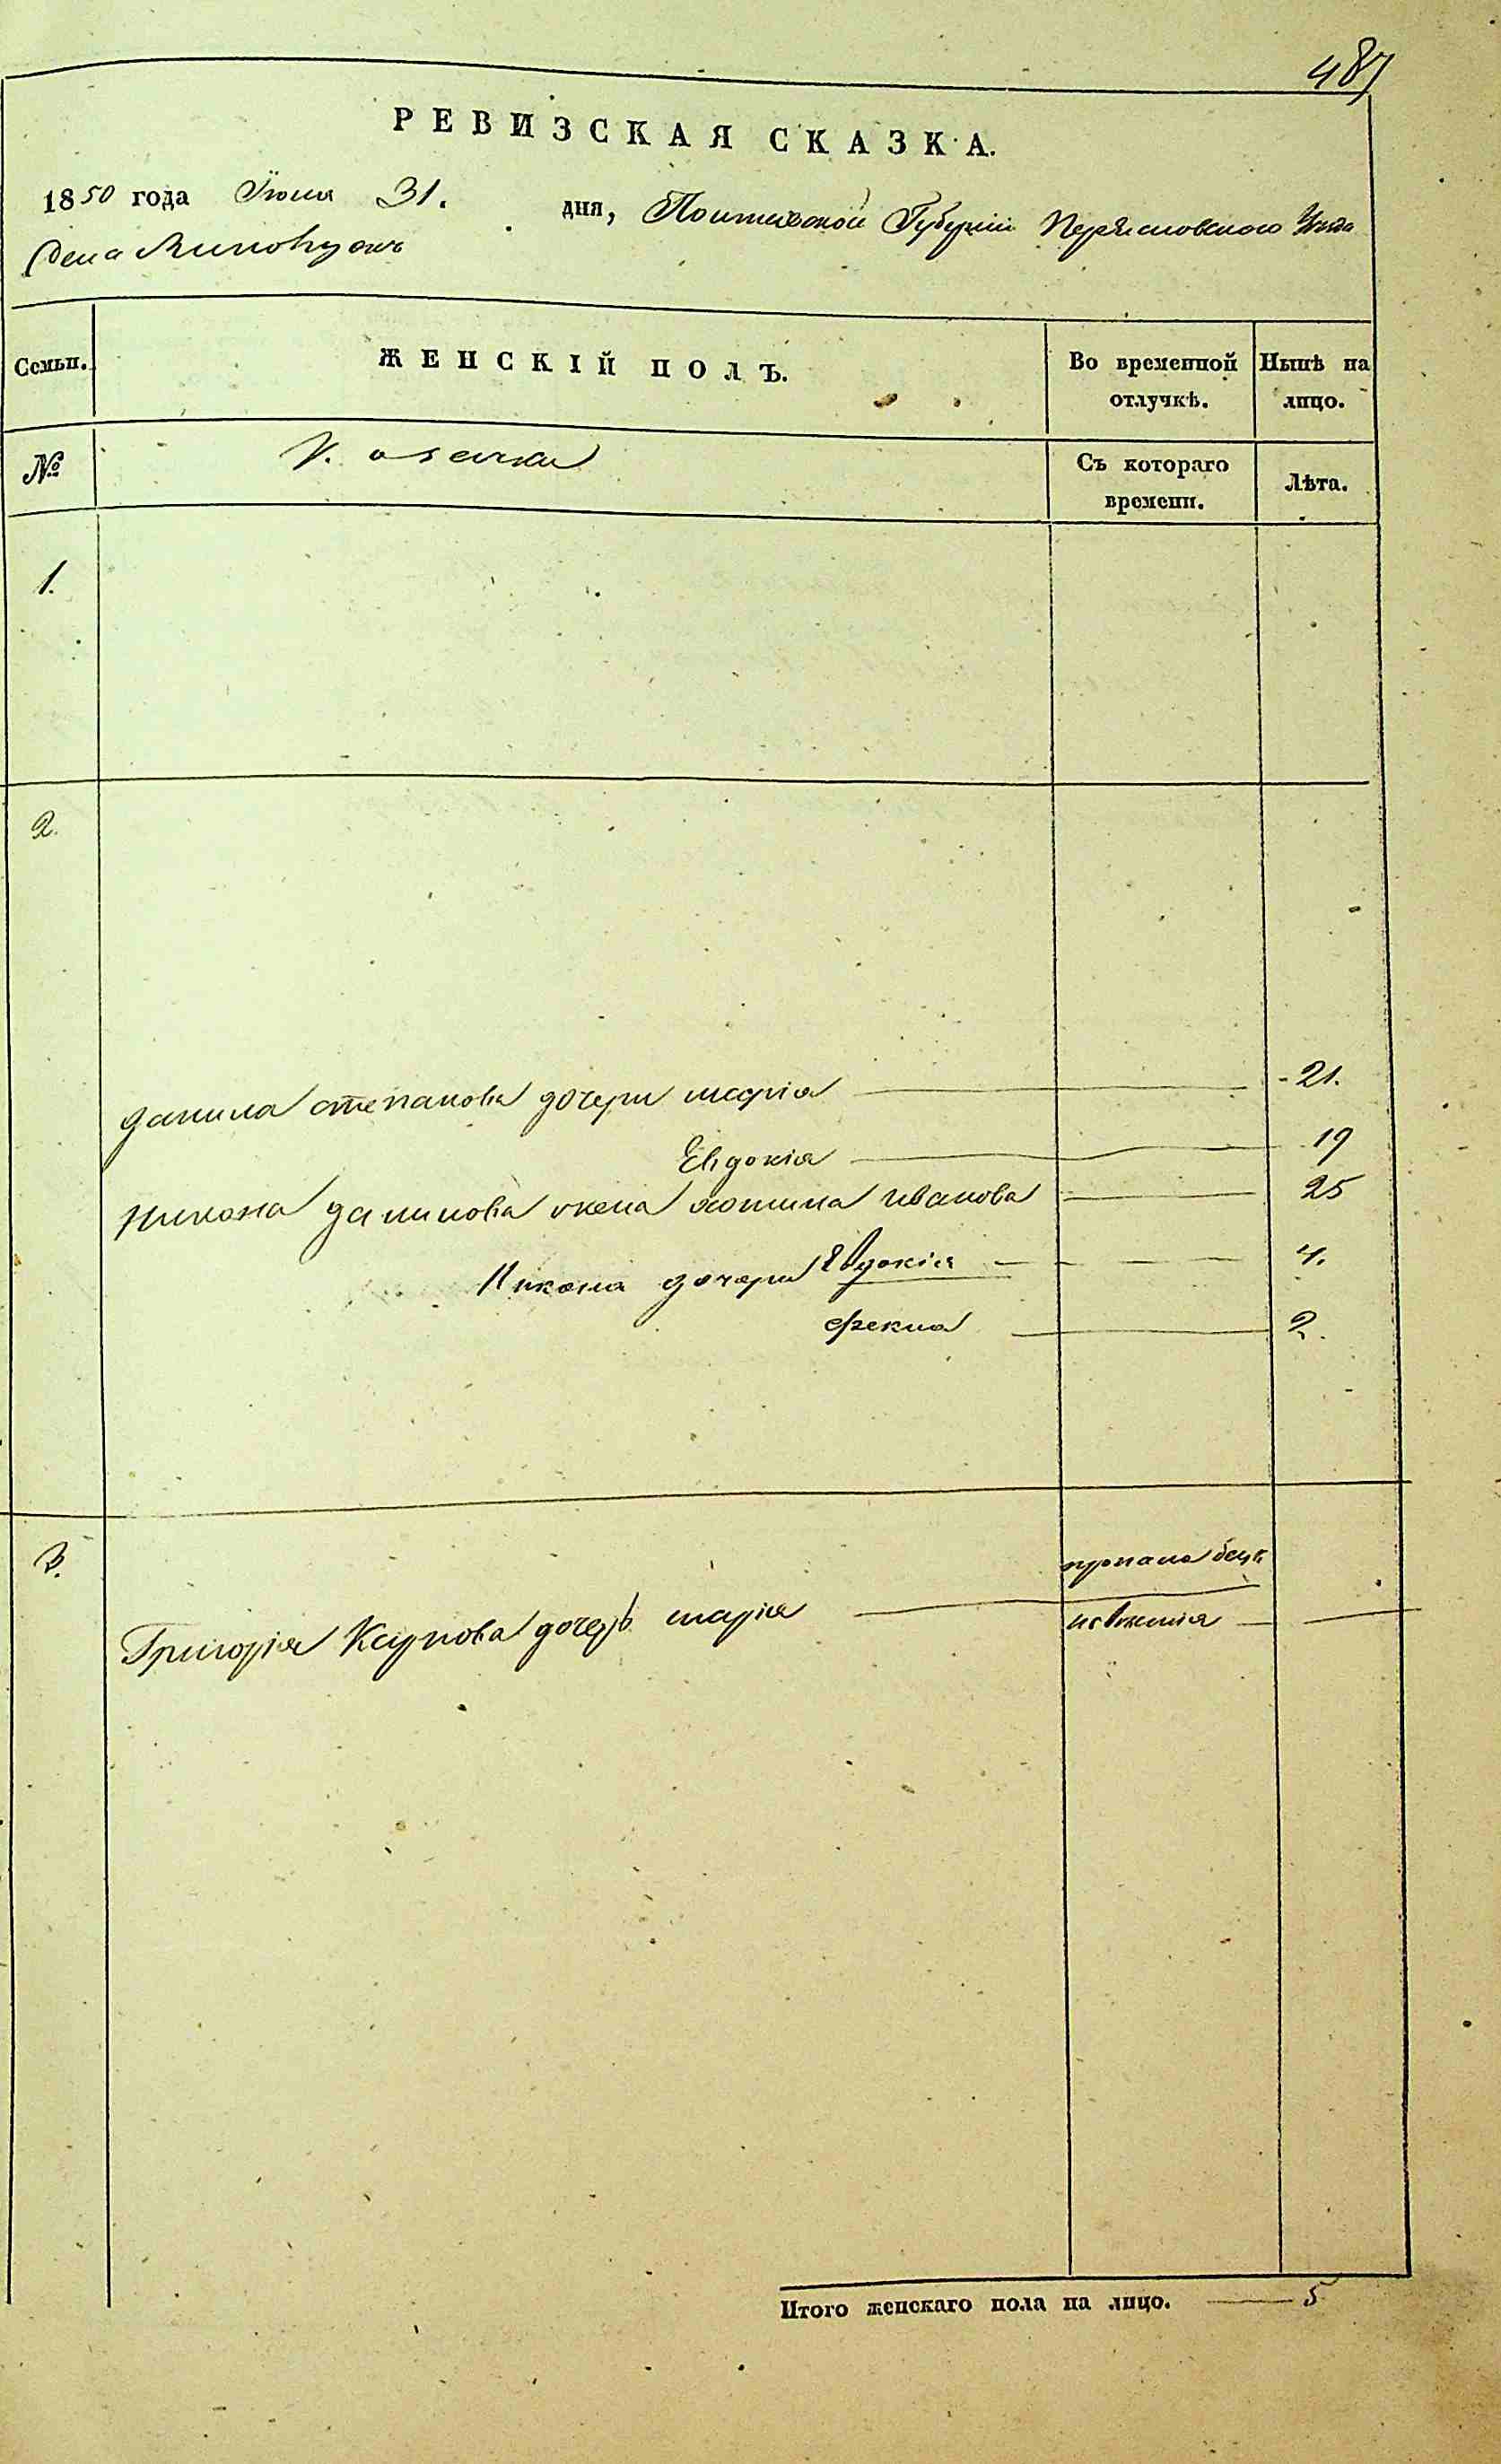 487
РЕВИЗСКАЯ СКАЗКА.
1850 года Июля 31. дня, Полтавской Губерніи Переяславского Уезда
Села
Семьи. ЖЕНСКІЙ ПОЛЪ. Во временной отлучкѣ. Нынѣ на лицо.
№ Козачки Съ котораго времени. Лѣта.
1.
2.
Данила степанова дочери марія 21.
Евдокія 19
Никона данилова жена хотина иванова 25
Никона дочери Евдокія 4.
фекла 2.
3.
пропала безъ
Григорія Карпова дочерь марія
Итого женскаго пола на лицо. 5